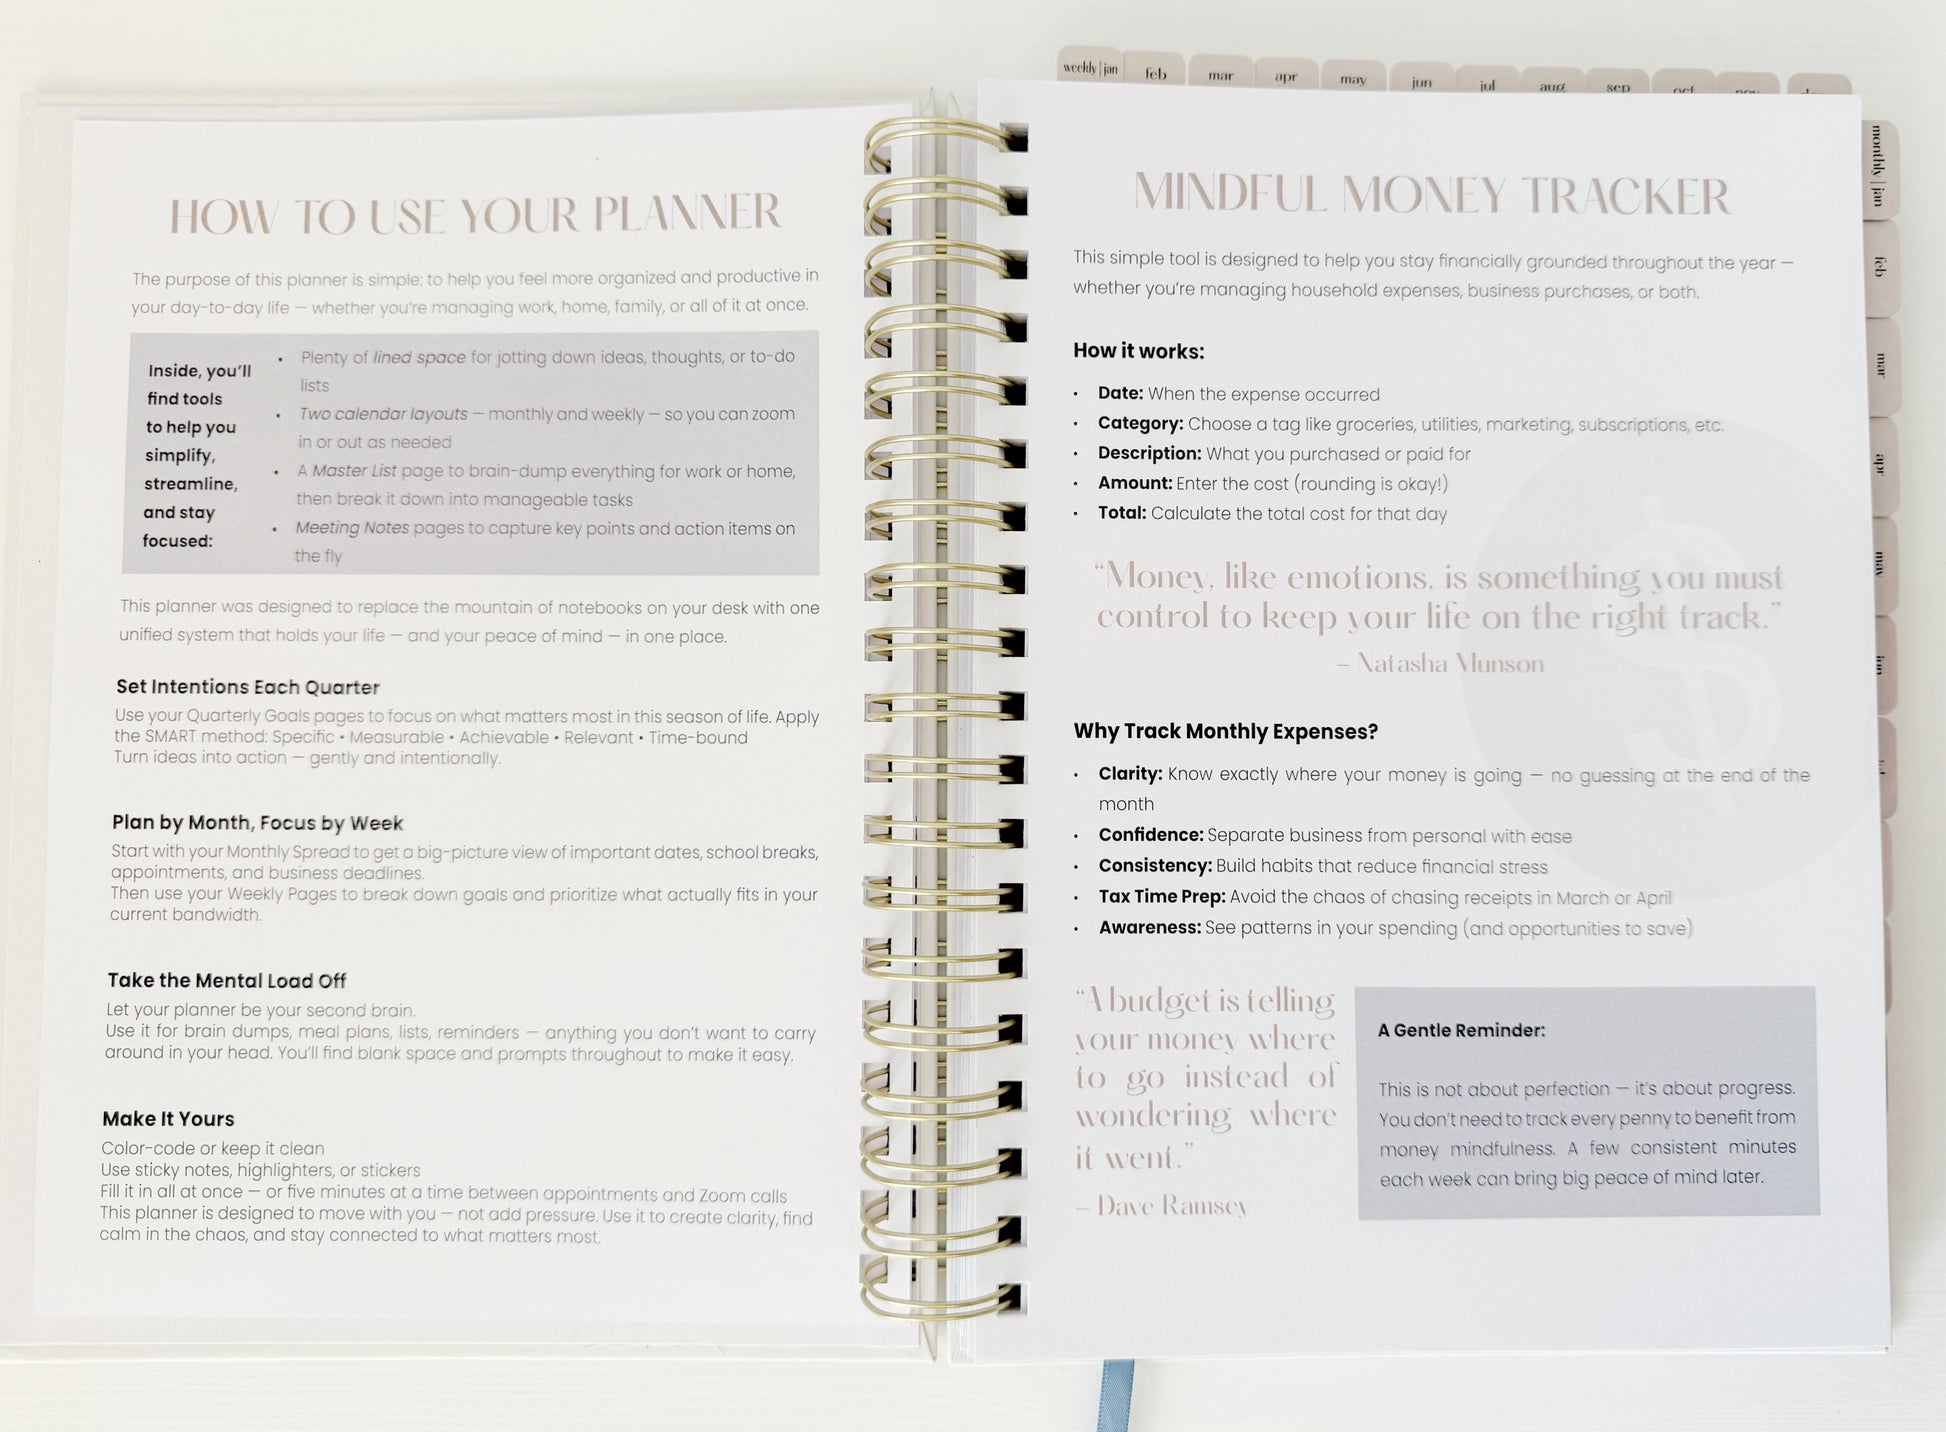 HOW TO USE YOUR PLANNER
The purpose of this planner is simple: to help you feel more organized and productive in
your day-to-day life — whether you're managing work, home, family, or all of it at once.
Inside, you'll
find tools
to help you
simplify,
streamline,
and stay
focused:
• Plenty of lined space for jotting down ideas, thoughts, or to-do
lists
• Two calendar layouts — monthly and weekly — so you can zoom
in or out as needed
• A Master List page to brain-dump everything for work or home,
then break it down into manageable tasks
• Meeting Notes pages to capture key points and action items on
the fly
This planner was designed to replace the mountain of notebooks on your desk with one
unified system that holds your life — and your peace of mind — in one place.
Set Intentions Each Quarter
Use your Quarterly Goals pages to focus on what matters most in this season of life. Apply
the SMART method: Specific • Measurable • Achievable • Relevant • Time-bound
Turn ideas into action — gently and intentionally.
Plan by Month, Focus by Week
Start with your Monthly Spread to get a big-picture view of important dates, school breaks,
appointments, and business deadlines.
Then use your Weekly Pages to break down goals and prioritize what actually fits in your
current bandwidth.
Take the Mental Load Off
Let your planner be your second brain.
Use it for brain dumps, meal plans, lists, reminders — anything you don't want to carry
around in your head. You'll find blank space and prompts throughout to make it easy.
Make It Yours
Color-code or keep it clean
Use sticky notes, highlighters, or stickers
Fill it in all at once — or five minutes at a time between appointments and Zoom calls
This planner is designed to move with you — not add pressure. Use it to create clarity, find
calm in the chaos, and stay connected to what matters most.
weekly | jan feb mar apr may jun jul aug sep oct nov
MINDFUL MONEY TRACKER
This simple tool is designed to help you stay financially grounded throughout the year —
whether you're managing household expenses, business purchases, or both.
How it works:
• Date: When the expense occurred
• Category: Choose a tag like groceries, utilities, marketing, subscriptions, etc.
• Description: What you purchased or paid for
• Amount: Enter the cost (rounding is okay!)
• Total: Calculate the total cost for that day
$
“Money, like emotions, is something you must
control to keep your life on the right track.”
– Natasha Munson
Why Track Monthly Expenses?
• Clarity: Know exactly where your money is going — no guessing at the end of the
month
• Confidence: Separate business from personal with ease
• Consistency: Build habits that reduce financial stress
• Tax Time Prep: Avoid the chaos of chasing receipts in March or April
• Awareness: See patterns in your spending (and opportunities to save)
“A budget is telling
your money where
to go instead of
wondering where
it went.”
– Dave Ramsey
A Gentle Reminder:
This is not about perfection — it's about progress.
You don't need to track every penny to benefit from
money mindfulness. A few consistent minutes
each week can bring big peace of mind later.
monthly | jan
feb
mar
apr
may
jun